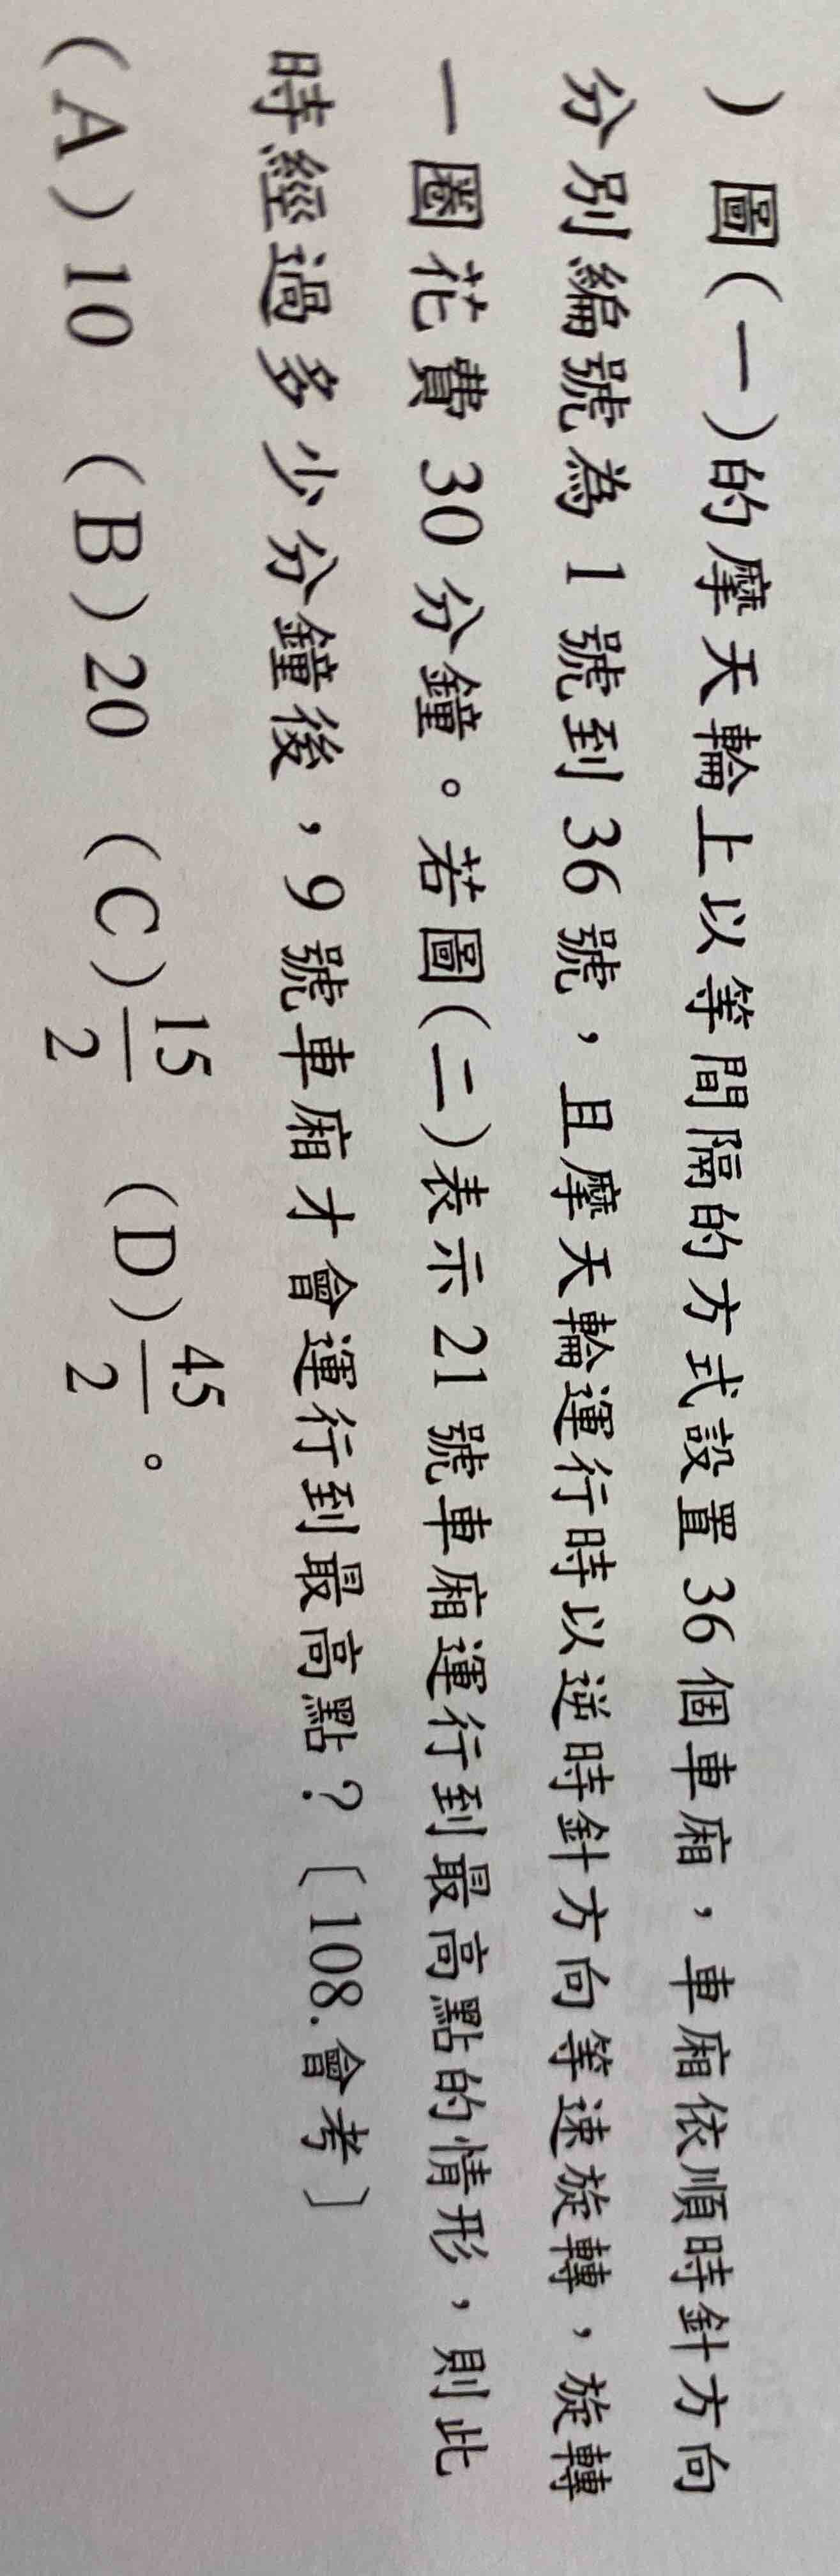 ）圖(一)的摩天輪上以等間隔的方式設置 36 個車廂，車廂依順時針方向
分別編號為 1 號到 36 號，且摩天輪運行時以逆時針方向等速旋轉，旋轉
一圈花費 30 分鐘。若圖(二)表示 21 號車廂運行到最高點的情形，則此
時經過多少分鐘後，9 號車廂才會運行到最高點？〔108.會考〕
（A）10 （B）20 （C）15/2 （D）45/2。